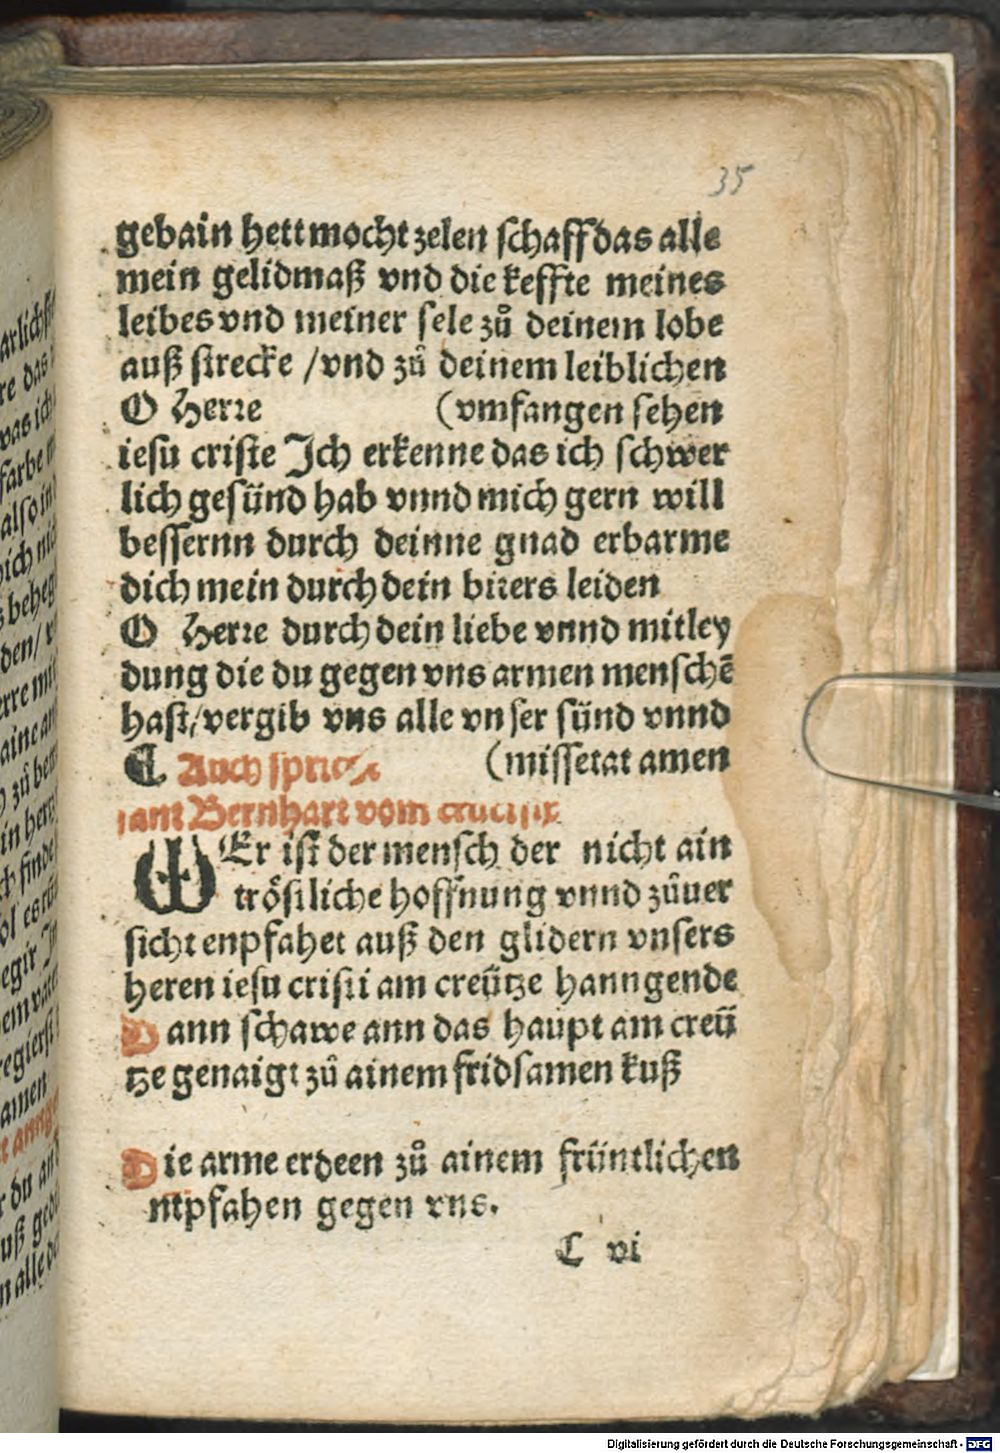 35
gebain hett mocht zelen schaff das alle
mein gelidmaß vnd die keffte meines
leibes vnd meiner sele zů deinem lobe
auß strecke /vnd zů deinem leiblichen
O Herre (vmfangen sehen
iesu criste Jch erkenne das ich schwer
lich gesünd hab vnnd mich gern will
bessernn durch deinne gnad erbarme
dich mein durch dein bitters leiden
O Herre durch dein liebe vnnd mitley
dung die du gegen vns armen menschē
hast/vergib vns alle vnser sünd vnnd
¶ Auch spricht (missetat amen
sant Bernhart vom crucifix
WEr ist der mensch der nicht ain
tröstliche hoffnung vnnd zůuer
sicht enpfahet auß den glidern vnsers
heren iesu cristi am creütze hanngende
Dann schawe ann das haupt am creü
tze genaigt zů ainem fridsamen kuß
Die arme erdeen zů ainem früntlichen
ntpfahen gegen vns.
C vi
Digitalisierung gefördert durch die Deutsche Forschungsgemeinschaft - DFG